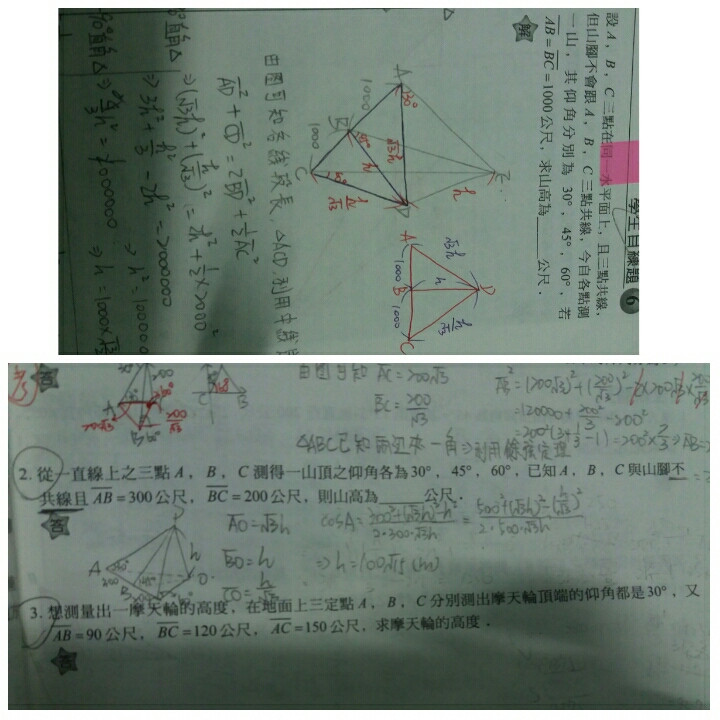 學生自練題 6
設 A，B，C 三點在同一水平面上，且三點共線，
但山腳不會跟 A，B，C 三點共線，今自各點測
一山，其仰角分別為 30°，45°，60°，若
AB = BC = 1000 公尺，求山高為＿＿＿公尺．
解
A
30°
1000
B
45°
h
√3h
C
1000
60°
h/√3
D
h
A
1000
B
1000
C
√3h
h
h/√3
D
由圖可知各線段長，△ACD,利用中線
AD² + CD² = 2BD² + ½AC²
⇒ (√3h)² + (h/√3)² = 2h² + ½×2000²
⇒ 3h² + h²/3 - 2h² = 2000000
⇒ 4/3h² = 2000000
⇒ h = 1000
由圖可知 AC = 200√3
BC = 200/√3
△ABC已知兩邊夾一角⇒利用餘弦定理
AB² = (200√3)² + (200/√3)² - 2×200√3×200/√3
= 120000 + 200²/3 - 200²
= 200²(3 + 1/3 - 1) = 200² × 7/3
2. 從一直線上之三點 A，B，C 測得一山頂之仰角各為30°，45°，60°，已知 A，B，C 與山腳不
共線且 AB = 300 公尺，BC = 200 公尺，則山高為＿＿＿公尺．
解
AO = √3h
BO = h
CO = h/√3
cosA = (300² + (√3h)² - h²)/(2·300·√3h) = (500² + (√3h)² - (h/√3)²)/(2·500·√3h)
⇒ h = 100√15 (m)
3. 想測量出一摩天輪的高度，在地面上三定點 A，B，C 分別測出摩天輪頂端的仰角都是30°，又
AB = 90 公尺，BC = 120 公尺，AC = 150 公尺，求摩天輪的高度．
解